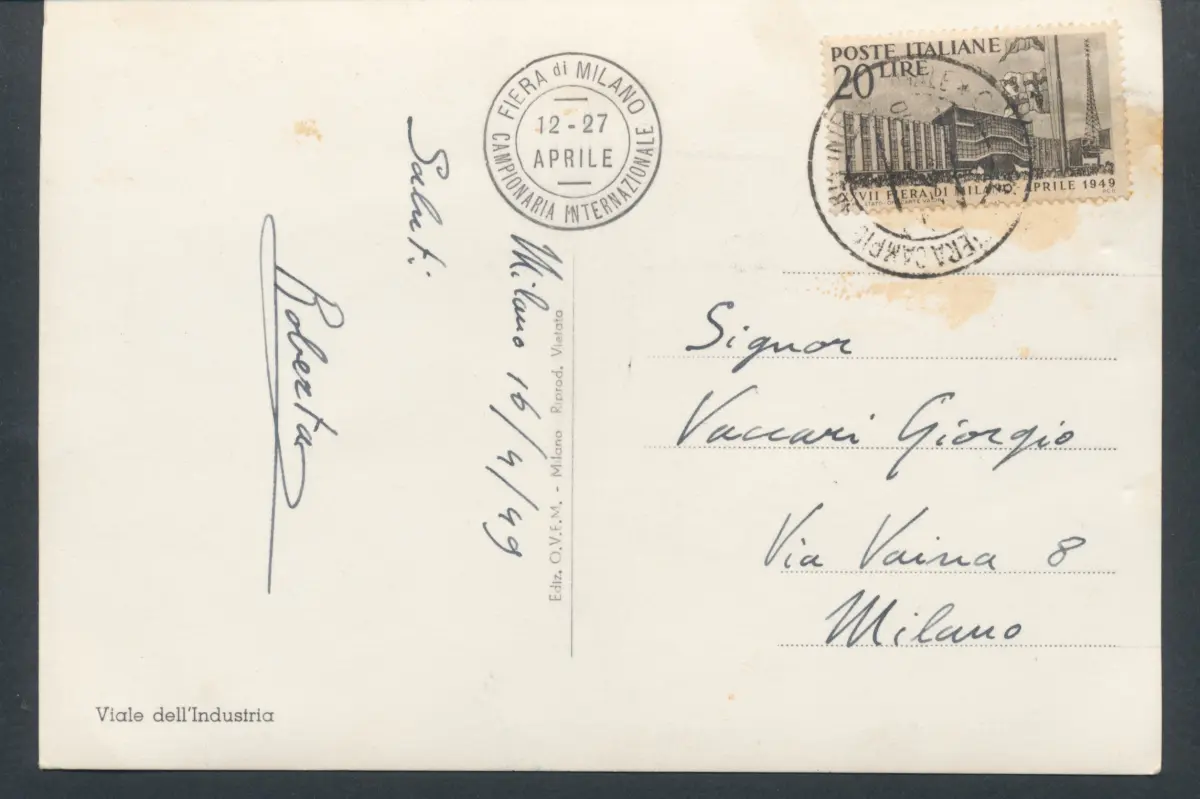 FIERA di MILANO
CAMPIONARIA INTERNAZIONALE
12-27
APRILE
POSTE ITALIANE
20 LIRE
VII FIERA DI MILANO · APRILE 1949
FIERA CAMPIO
Saluti
Roberta
Milano 16/4/49
Ediz. O.V.E.M. - Milano Riprod. Vietata
Signor
Vaccari Giorgio
Via Vaina 8
Milano
Viale dell'Industria